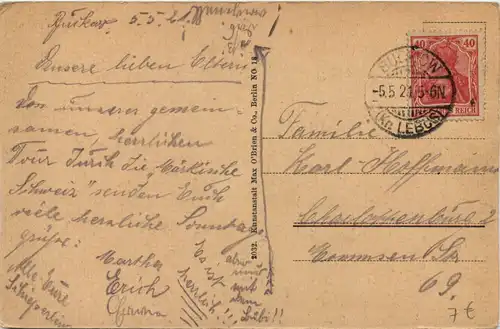 Buckow, 5.5.21.
Unsere lieben Eltern
Von unserer gemein-
samen, herrlichen
Tour durch die „Märkische
Schweiz" senden Euch
viele herzliche Sonntag
grüße:
Martha
Erich
Es ist herrlich!!!
aber nur
mit dem
Alle Eure
2032. Kunstanstalt Max O'Brien & Co., Berlin NO 18
40 40
REICH
BUCKOW
-5.5.21.5-6N
(Kr. LEBUS)
Familie
Karl Hoffmann
Charlottenburg
Mommsen Str
69.
7€